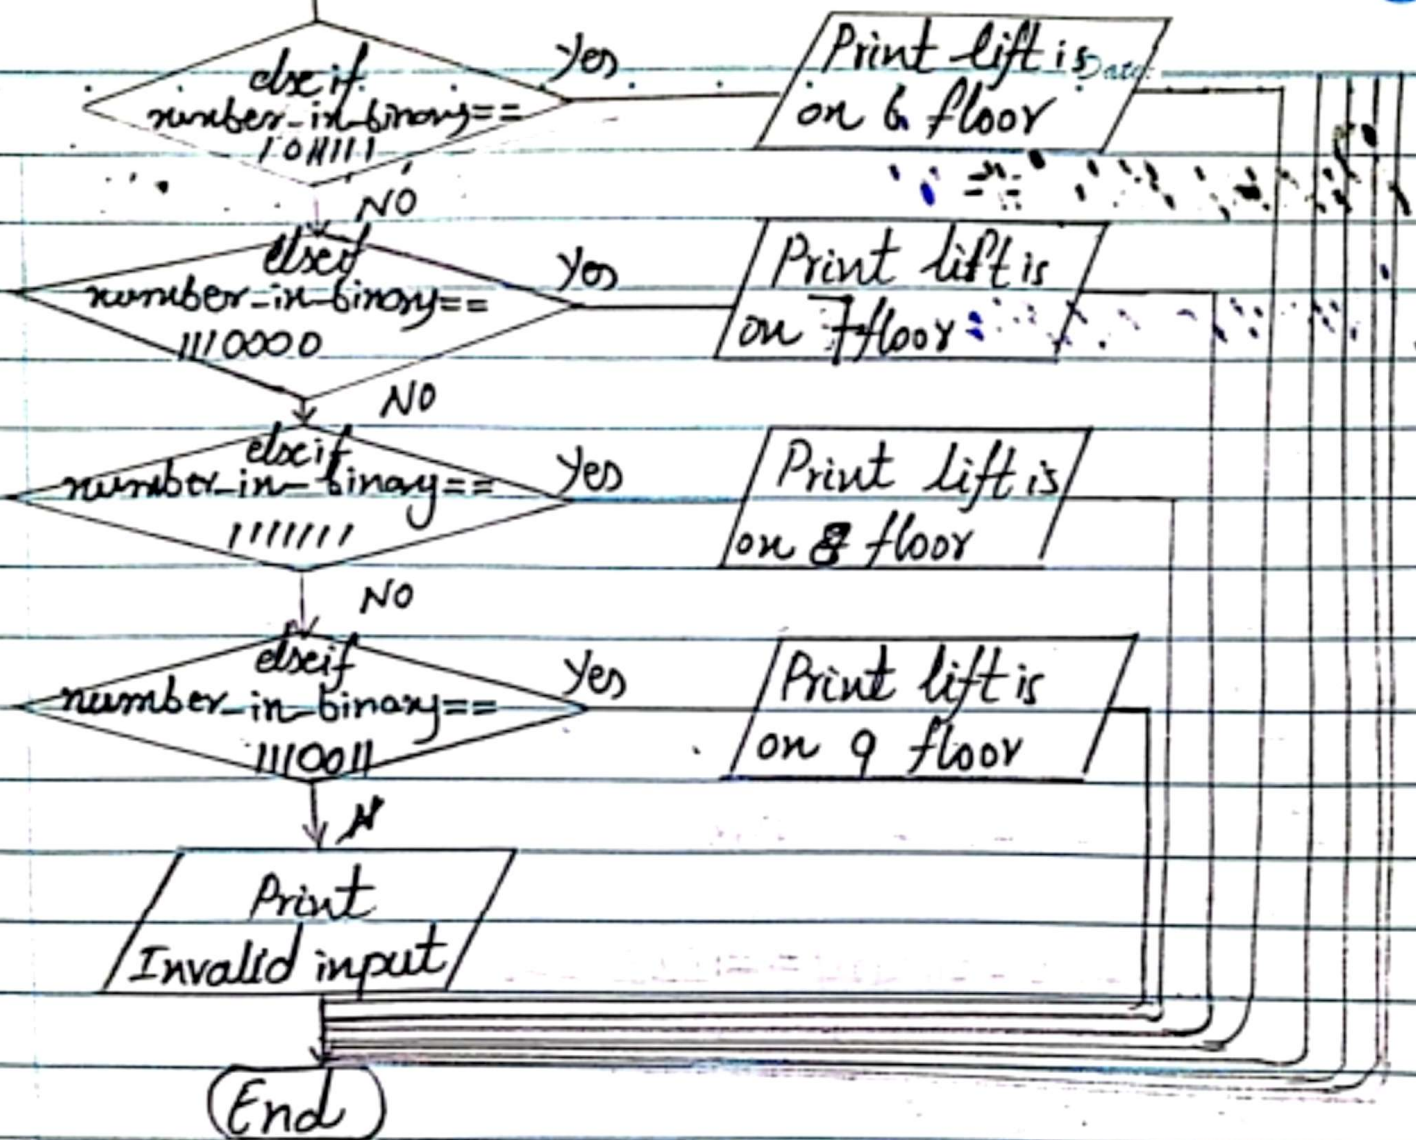 else if
number_in_binary==
1011111
Yes
Print lift is
on 6 floor
Date:
NO
elseif
number_in_binary==
1110000
Yes
Print lift is
on 7 floor
NO
elseif
number_in_binary==
1111111
Yes
Print lift is
on 8 floor
NO
elseif
number_in_binary==
11110011
Yes
Print lift is
on 9 floor
N
Print
Invalid input
End